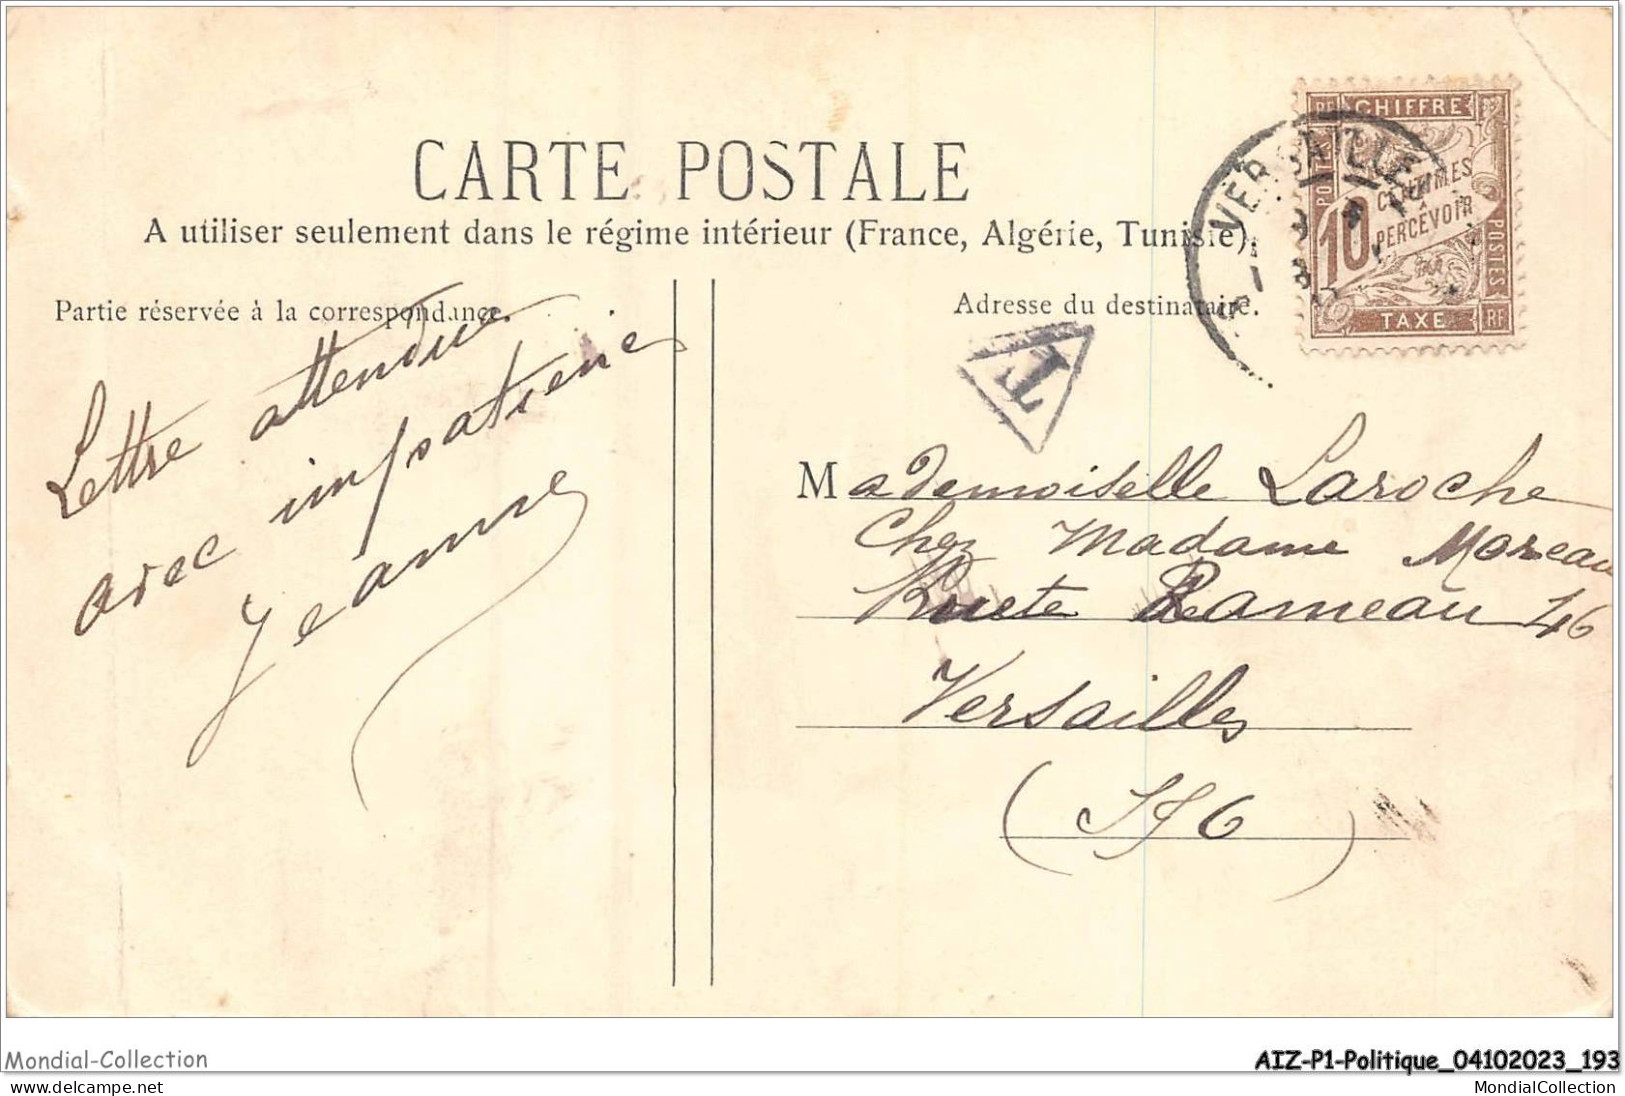 CARTE POSTALE
A utiliser seulement dans le régime intérieur (France, Algérie, Tunisie).
Partie réservée à la correspondance.
Adresse du destinataire.
Lettre attendue
avec impatience
Jeanne
RF CHIFFRE
POSTES
10 CENTIMES
A PERCEVOIR
POSTES
TAXE RF
VERSAILLES
T
Mademoiselle Laroche
Chez Madame Moreau
Rue Rameau 46
Versailles
(S & O)
Mondial-Collection
delcampe.net
AIZ-P1-Politique_04102023_193
MondialCollection